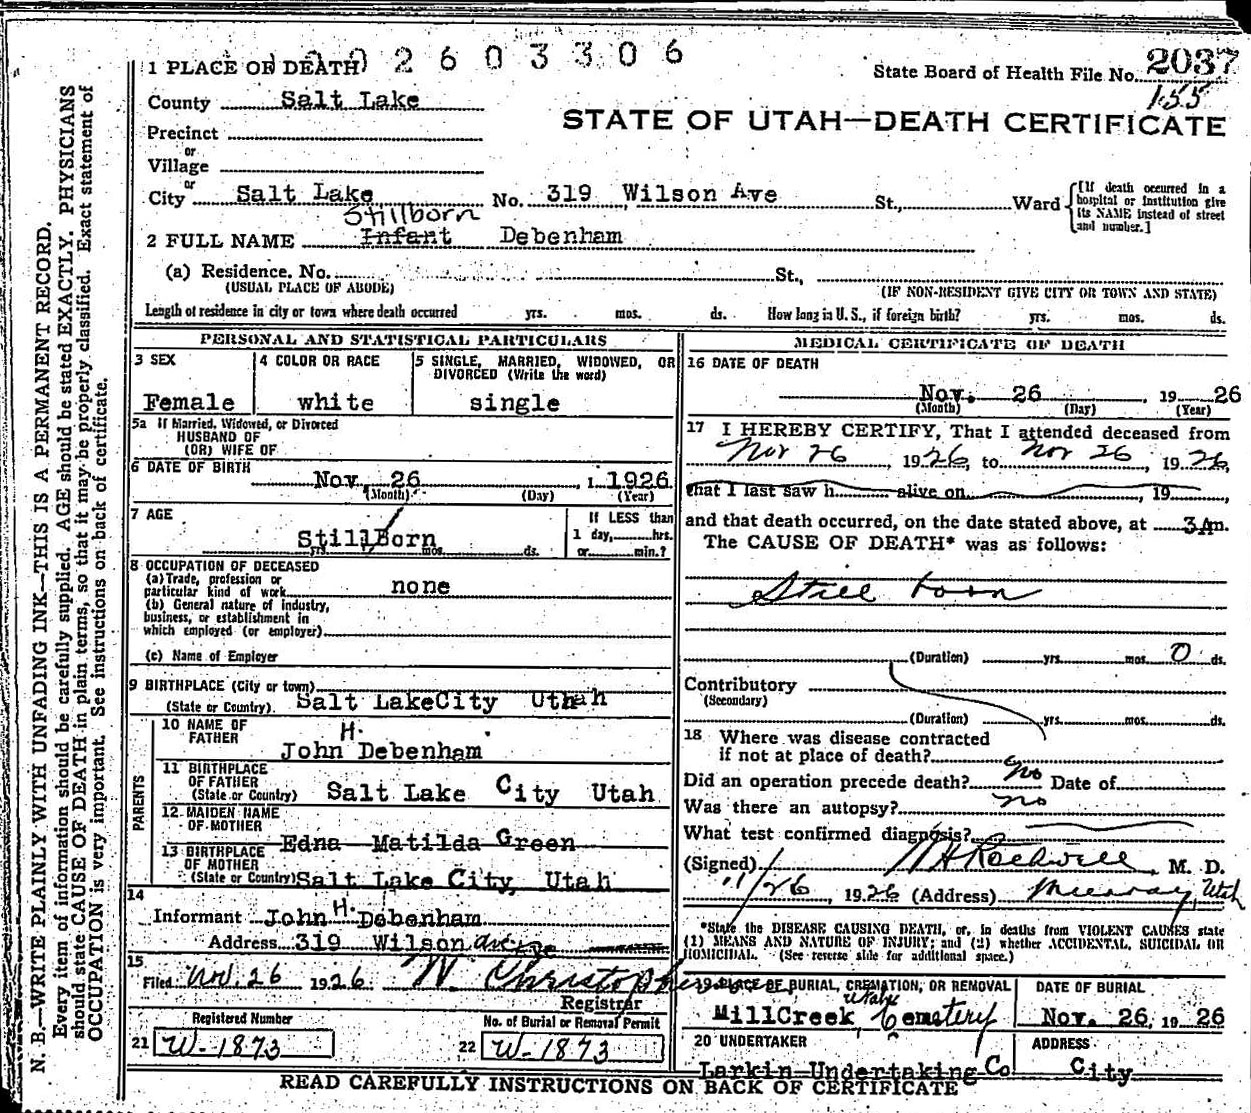 2603306
1 PLACE OF DEATH
State Board of Health File No. 2037
155
County Salt Lake
STATE OF UTAH—DEATH CERTIFICATE
Precinct
or
Village
or
City Salt Lake No. 319 Wilson Ave St., Ward [If death occurred in a hospital or institution give its NAME instead of street and number.]
Stillborn
2 FULL NAME Infant Debenham
(a) Residence. No. St.,
(USUAL PLACE OF ABODE) (IF NON-RESIDENT GIVE CITY OR TOWN AND STATE)
Length of residence in city or town where death occurred yrs. mos. ds. How long in U. S., if foreign birth? yrs. mos. ds.
N. B.—WRITE PLAINLY WITH UNFADING INK—THIS IS A PERMANENT RECORD.
Every item of information should be carefully supplied. AGE should be stated EXACTLY. PHYSICIANS
should state CAUSE OF DEATH in plain terms, so that it may be properly classified. Exact statement of
OCCUPATION is very important. See instructions on back of certificate.
PERSONAL AND STATISTICAL PARTICULARS
3 SEX 4 COLOR OR RACE 5 SINGLE, MARRIED, WIDOWED, OR
DIVORCED (Write the word)
Female white single
5a If Married, Widowed, or Divorced
HUSBAND OF
(OR) WIFE OF
6 DATE OF BIRTH
Nov. 26, 1926
(Month) (Day) (Year)
7 AGE If LESS than
StillBorn 1 day, hrs.
yrs. mos. ds. or min.?
8 OCCUPATION OF DECEASED
(a) Trade, profession or
particular kind of work none
(b) General nature of industry,
business, or establishment in
which employed (or employer)
(c) Name of Employer
9 BIRTHPLACE (City or town)
(State or Country). Salt LakeCity Utah
PARENTS
10 NAME OF
FATHER H.
John Debenham
11 BIRTHPLACE
OF FATHER
(State or Country) Salt Lake City Utah
12 MAIDEN NAME
OF MOTHER
Edna Matilda Green
13 BIRTHPLACE
OF MOTHER
(State or Country) Salt Lake City, Utah
14
Informant John H. Debenham
Address 319 Wilson
15
Filed Nov. 26 1926.
Registrar
Registered Number No. of Burial or Removal Permit
21 W-1873 22 W-1873
MEDICAL CERTIFICATE OF DEATH
16 DATE OF DEATH
Nov. 26, 1926
(Month) (Day) (Year)
17 I HEREBY CERTIFY, That I attended deceased from
Nov 26, 1926, to Nov 26, 1926,
that I last saw h alive on, 19,
and that death occurred, on the date stated above, at 3Am.
The CAUSE OF DEATH* was as follows:
Still born
(Duration) yrs. mos. 0 ds.
Contributory
(Secondary)
(Duration) yrs. mos. ds.
18 Where was disease contracted
if not at place of death?
Did an operation precede death? no Date of
Was there an autopsy? no
What test confirmed diagnosis?
(Signed) Rockwell, M. D.
11/26, 1926 (Address) Murray, Utah
*State the DISEASE CAUSING DEATH, or, in deaths from VIOLENT CAUSES state
(1) MEANS AND NATURE OF INJURY; and (2) whether ACCIDENTAL, SUICIDAL OR
HOMICIDAL. (See reverse side for additional space.)
19 PLACE OF BURIAL, CREMATION, OR REMOVAL DATE OF BURIAL
Utah
MillCreek, Cemetery Nov. 26, 1926
20 UNDERTAKER ADDRESS
Larkin Undertaking Co City
READ CAREFULLY INSTRUCTIONS ON BACK OF CERTIFICATE